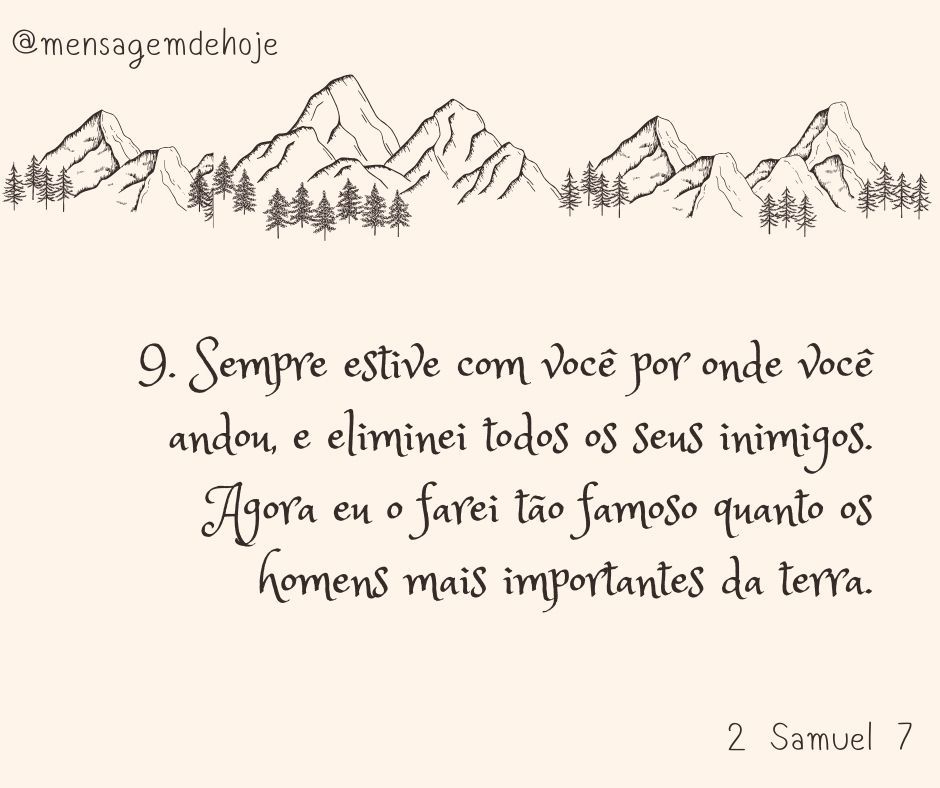 @mensagemdehoje
9. Sempre estive com você por onde você
andou, e eliminei todos os seus inimigos.
Agora eu o farei tão famoso quanto os
homens mais importantes da terra.
2 Samuel 7